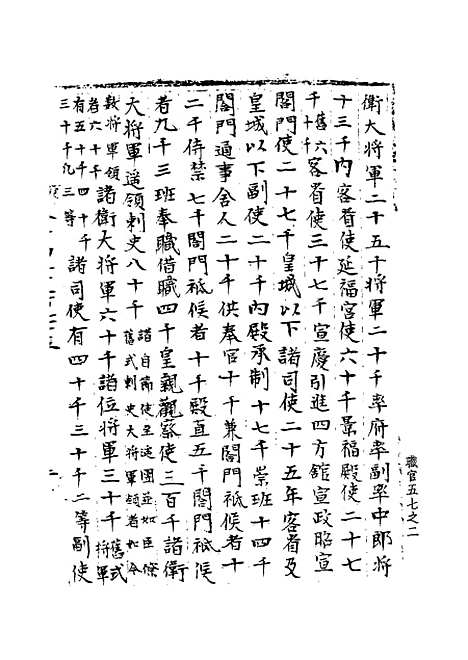 職官五七之二
衛大將軍二十五千將軍二十千率府率副率中郎將
十三千內客省使延福宮使六十千景福殿使二十七
千舊六十千客省使三十七千宣慶引進四方館宣政昭宣
閤門使二十七千皇城以下諸司使二十五年客省及
皇城以下副使二十千內殿承制十七千崇班十四千
閤門通事舍人二十千供奉官十千兼閤門祗候者十
二千侍禁七千閤門祗候者十千殿直五千閤門祗候
者九千三班奉職借職四千皇親觀察使三百千諸衛
大將軍遥領刺史八十千諸自節使至遂團並如臣條舊式刺史大將軍領者如今
數將軍領者六十千諸衛大將軍六十千諸位將軍三十千舊式將軍
有五十千四十千三十千凡三等諸司使有四十千三十千二等副使